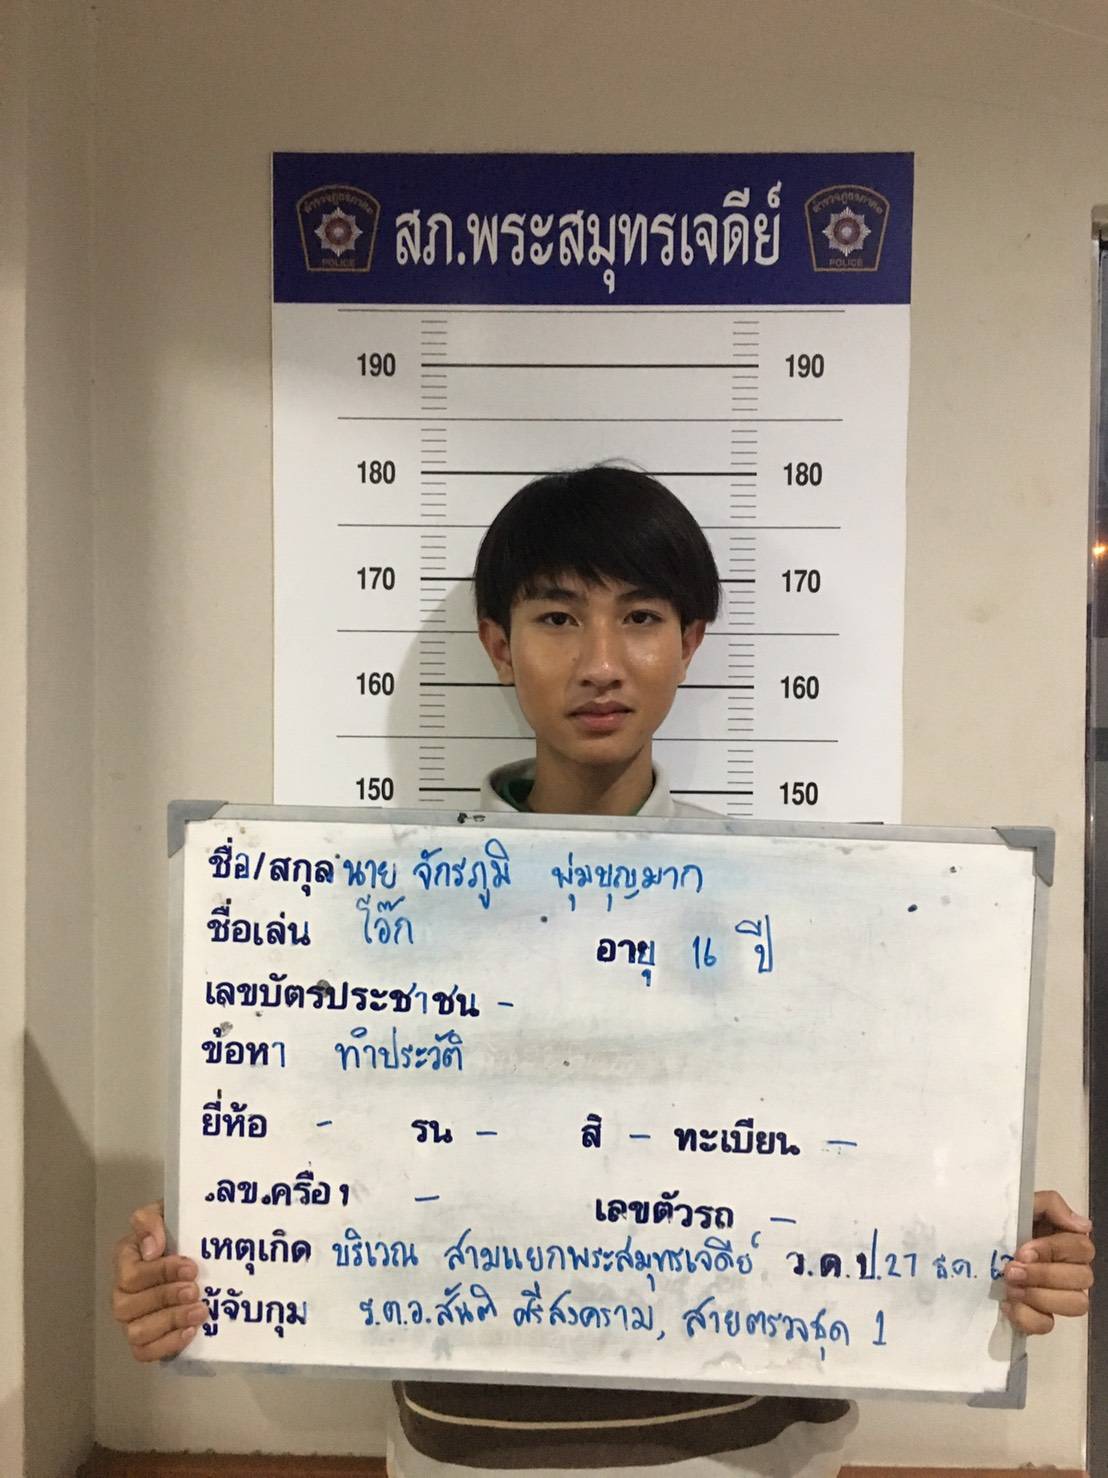 สภ.พระสมุทรเจดีย์
POLICE POLICE
190 190
180 180
170 170
160 160
150 150
ชื่อ/สกุล นาย จักรภูมิ พุ่มบุญมาก
ชื่อเล่น โอ๊ก อายุ 16 ปี
เลขบัตรประชาชน -
ข้อหา ทำประวัติ
ยี่ห้อ - รุ่น - สี - ทะเบียน -
เลขเครื่อง - เลขตัวรถ -
เหตุเกิด บริเวณ สามแยกพระสมุทรเจดีย์ ว.ด.ป. 27 ธ.ค.
ผู้จับกุม ร.ต.อ.สันติ ศรีสงคราม, สายตรวจชุด 1